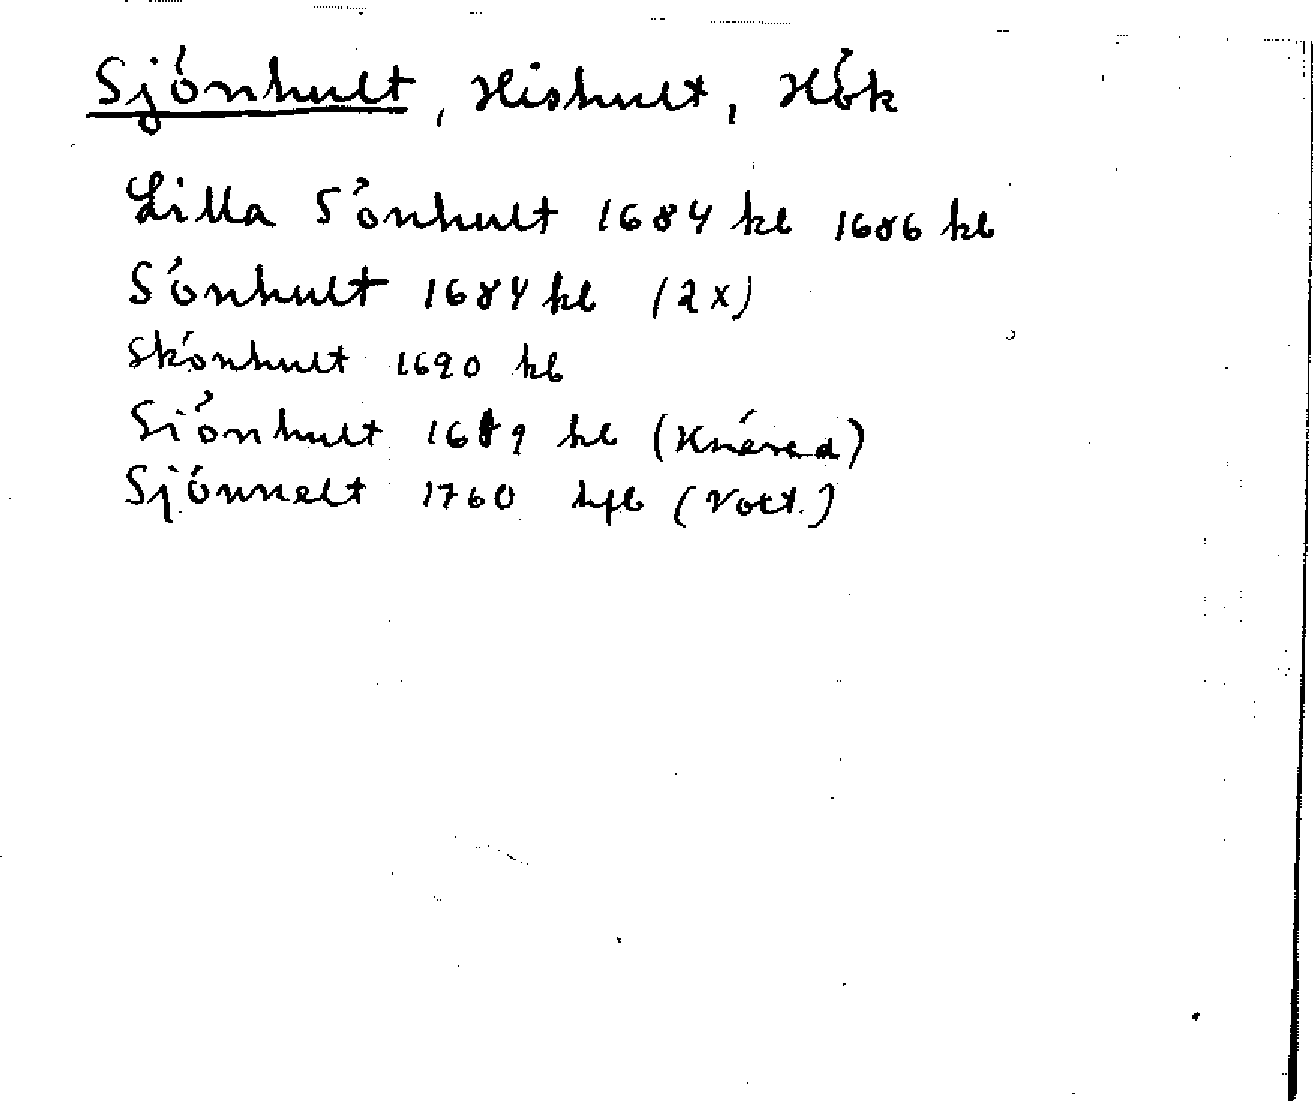 Sjönhult, Hishult, Hök
Lilla Sönhult 1684 kb 1686 kb
Sönhult 1684 kb (2x)
Skönhult 1690 kb
Siönhult 1689 kb (Knäred)
Sjönnelt 1760 hfb (Voct.)